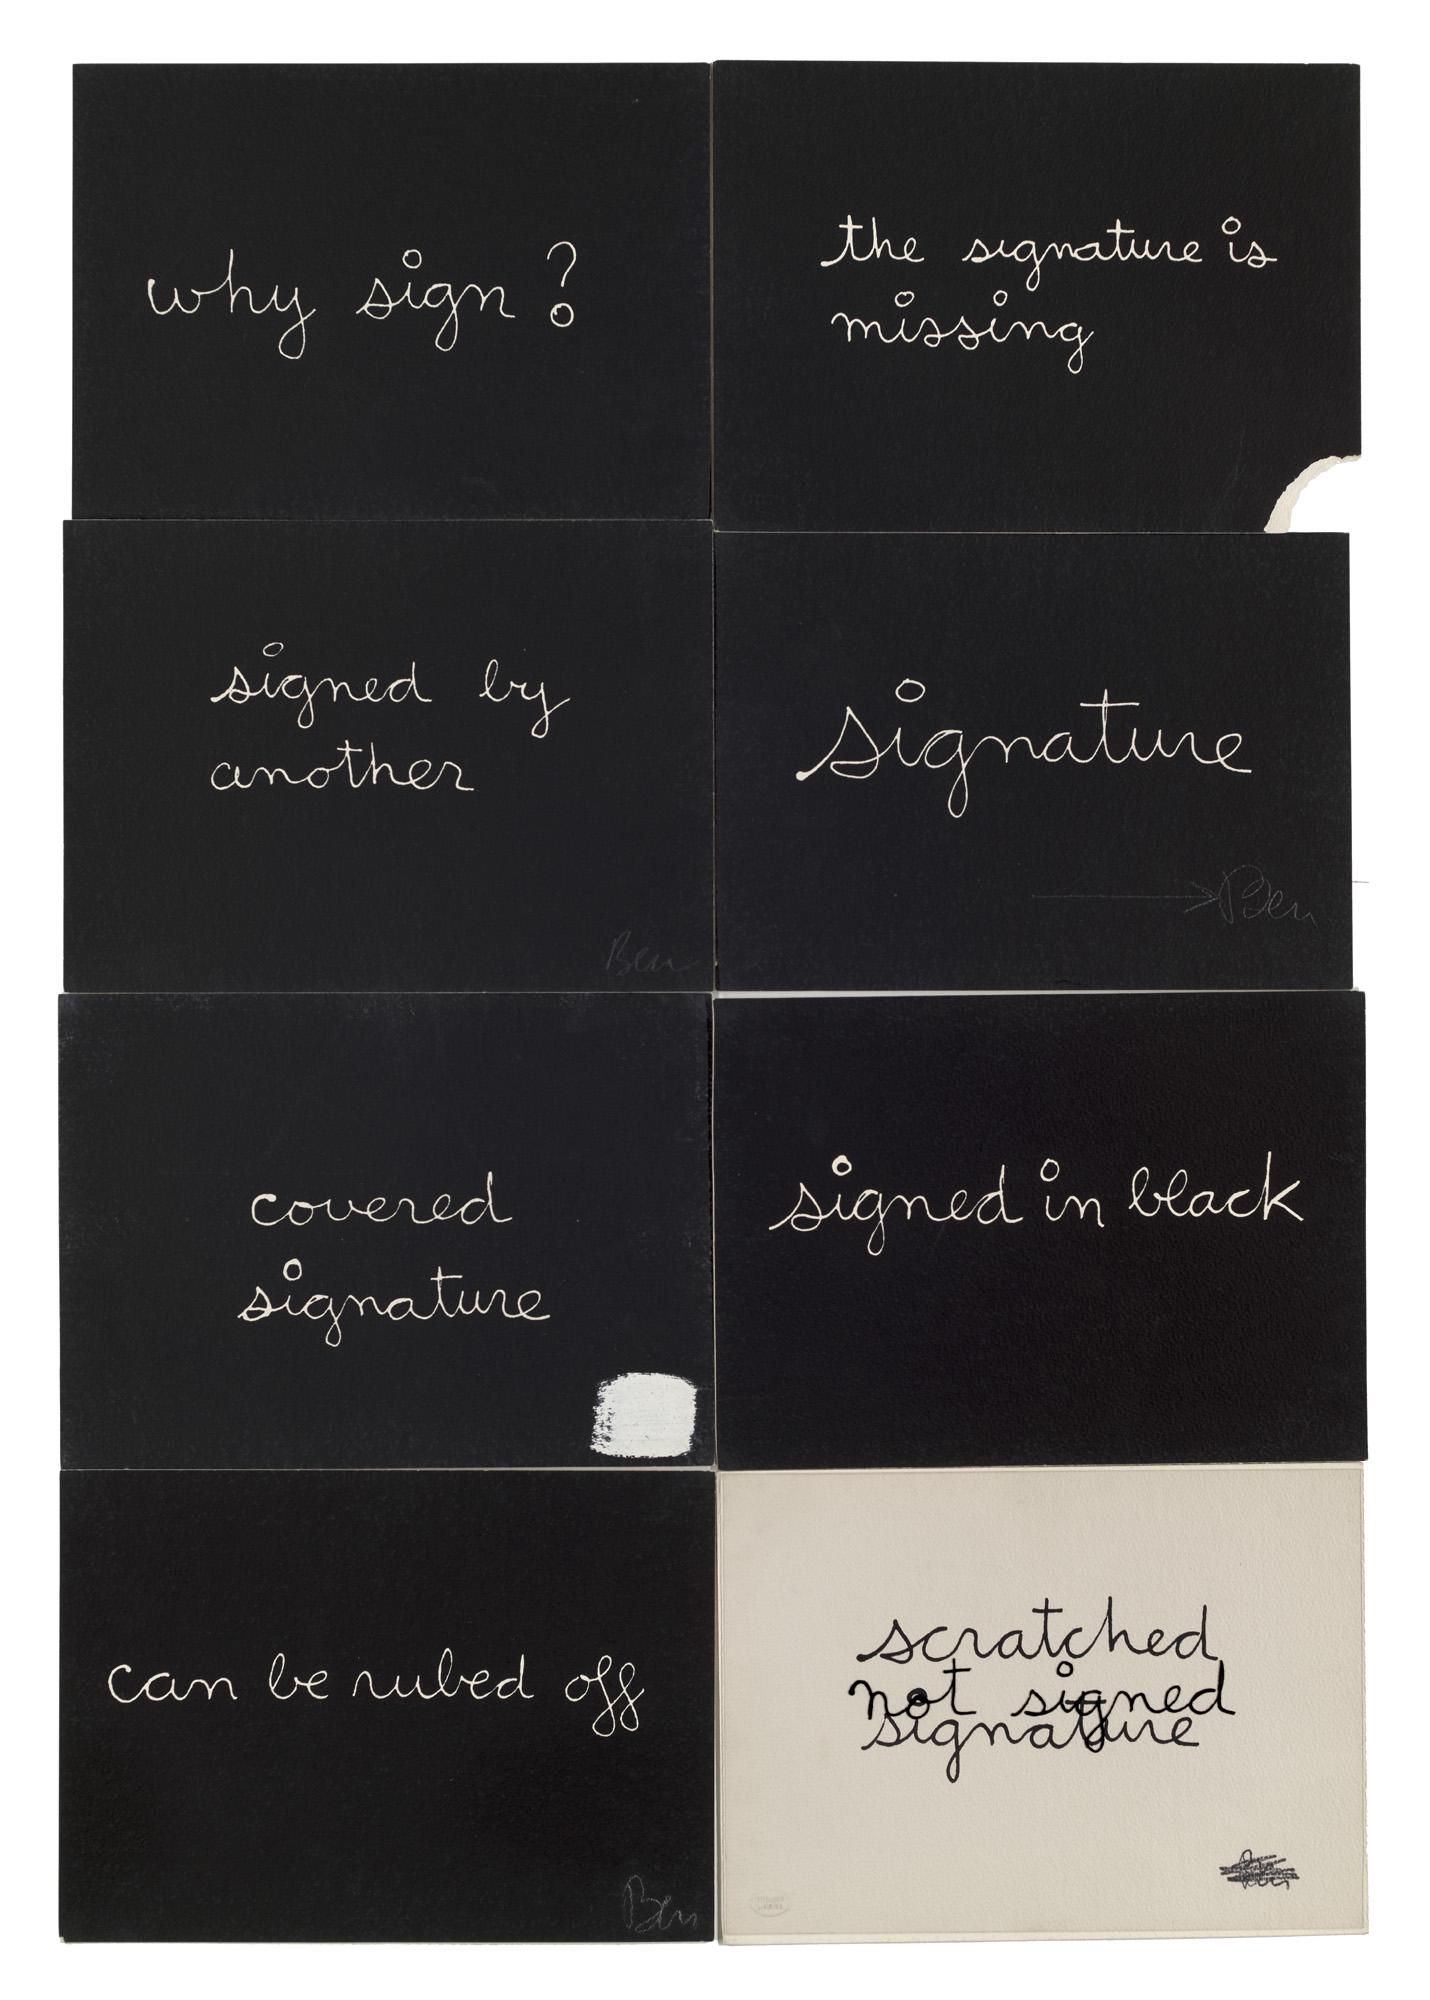 why sign ?
the signature is
missing
signed by
another
Ben
signature
Ben
covered
signature
signed in black
can be rubed off
Ben
scratched
not signed
signature
Ben